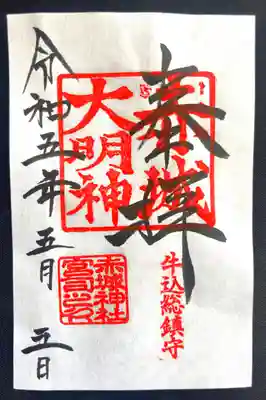 奉拝
赤城
大明神
牛込総鎮守
令和五年五月五日
赤城神社
宮司之印